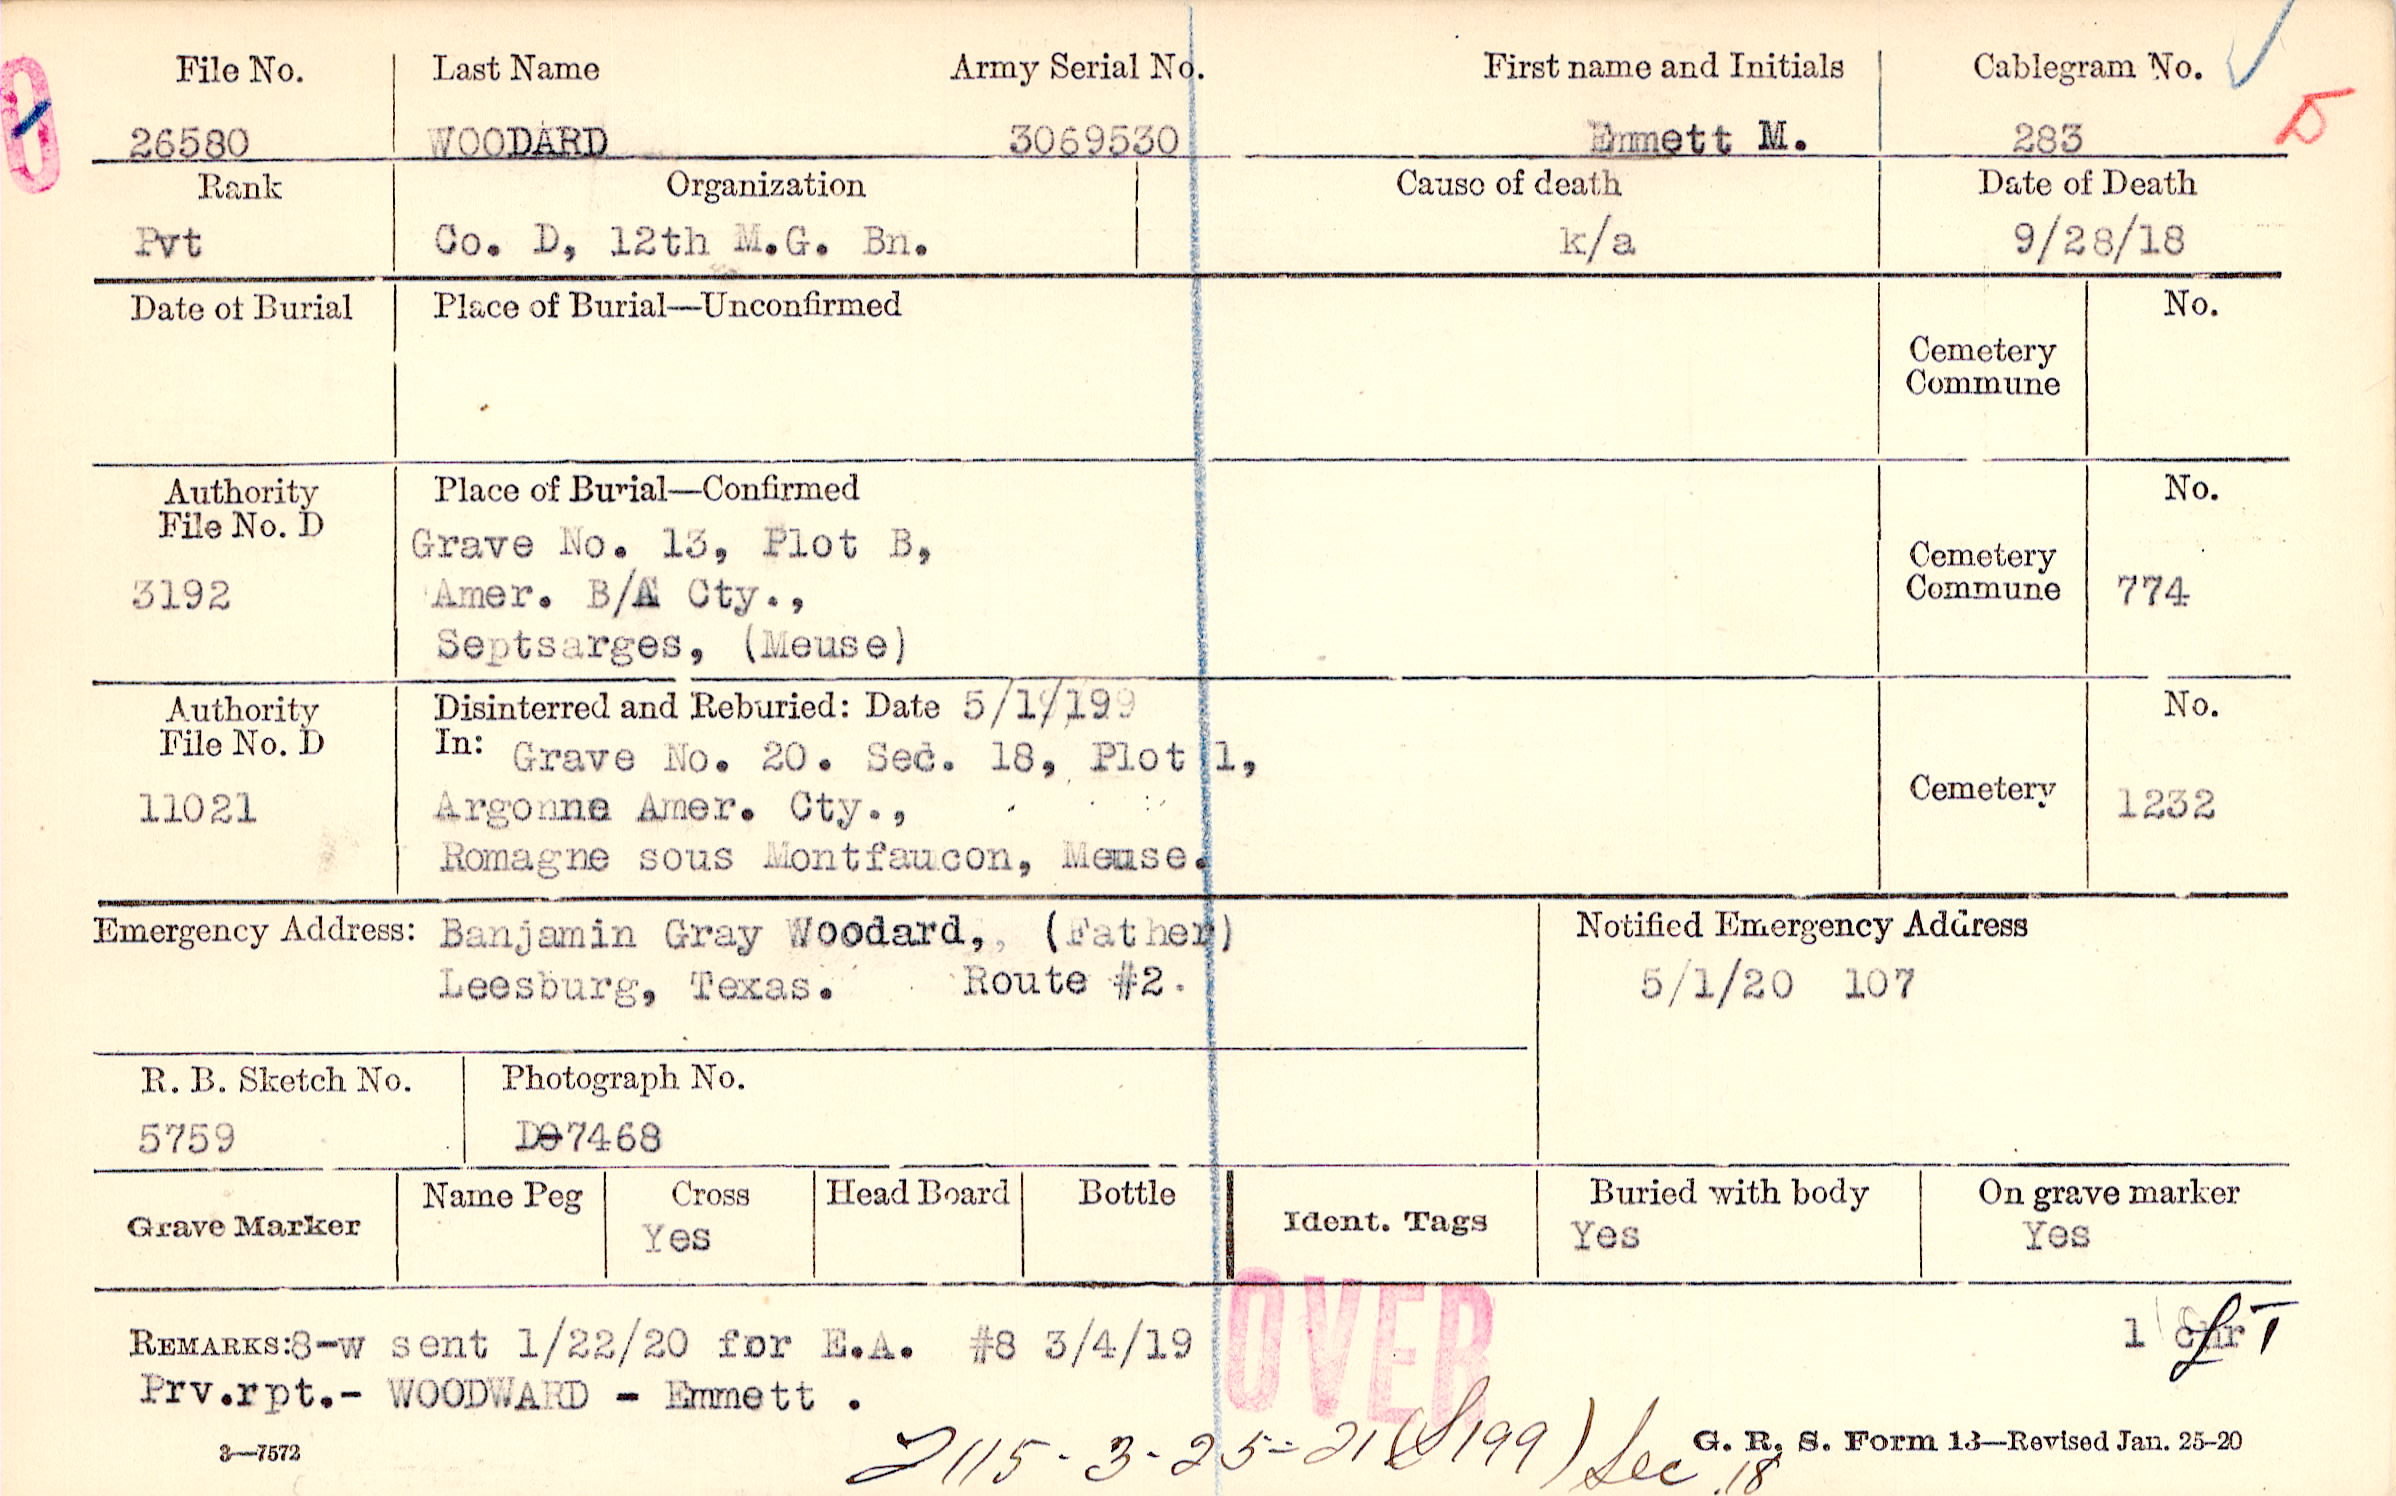 File No. Last Name Army Serial No. First name and Initials Cablegram No.
26580 WOODARD 3069530 Emmett M. 283
Rank Organization Cause of death Date of Death
Pvt Co. D, 12th M.G. Bn. k/a 9/28/18
Date of Burial Place of Burial—Unconfirmed No.
Cemetery
Commune
Authority Place of Burial—Confirmed No.
File No. D
Grave No. 13, Plot B,
Cemetery
3192 Amer. B/A Cty., Commune 774
Septsarges, (Meuse)
Authority Disinterred and Reburied: Date 5/1/199 No.
File No. D In: Grave No. 20. Sec. 18, Plot 1,
11021 Argonne Amer. Cty., Cemetery 1232
Romagne sous Montfaucon, Meuse.
Emergency Address: Banjamin Gray Woodard,, (Father) Notified Emergency Address
Leesburg, Texas. Route #2. 5/1/20 107
R. B. Sketch No. Photograph No.
5759 D07468
Grave Marker Name Peg Cross Head Board Bottle Ident. Tags Buried with body On grave marker
Yes Yes Yes
OVER
REMARKS:8-w sent 1/22/20 for E.A. #8 3/4/19 1
Prv.rpt.- WOODWARD - Emmett .
3—7572 2115-3-25-21 (S199) Sec 18 G. R. S. Form 13—Revised Jan. 25-20